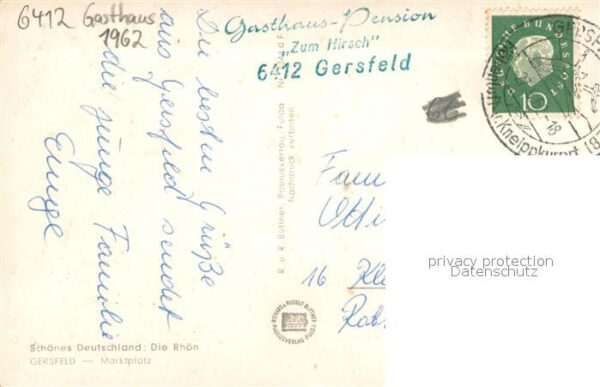 6412 Gasthaus
1962
Gasthaus-Pension
„Zum Hirsch"
6412 Gersfeld
DEUTSCHE BUNDESPOST
10
GERSF
18
Kneippkurort
Die besten Grüße
aus Gersfeld sendet
die junge Familie
R. u. R. Büttner, Paulusverlag, Fulda
Nachdruck verboten
Fam
16
privacy protection
Datenschutz
Schönes Deutschland: Die Rhön
GERSFELD — Marktplatz